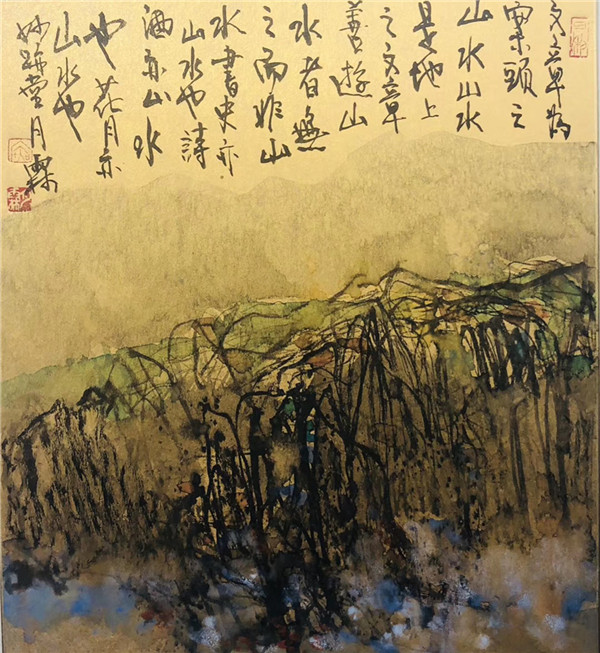 文章為
案頭之
山水山水
是地上
之文章
善遊山
水者無
之而非山
水書史亦
山水也詩
酒亦山水
也花月亦
山水也
妙堂月霖